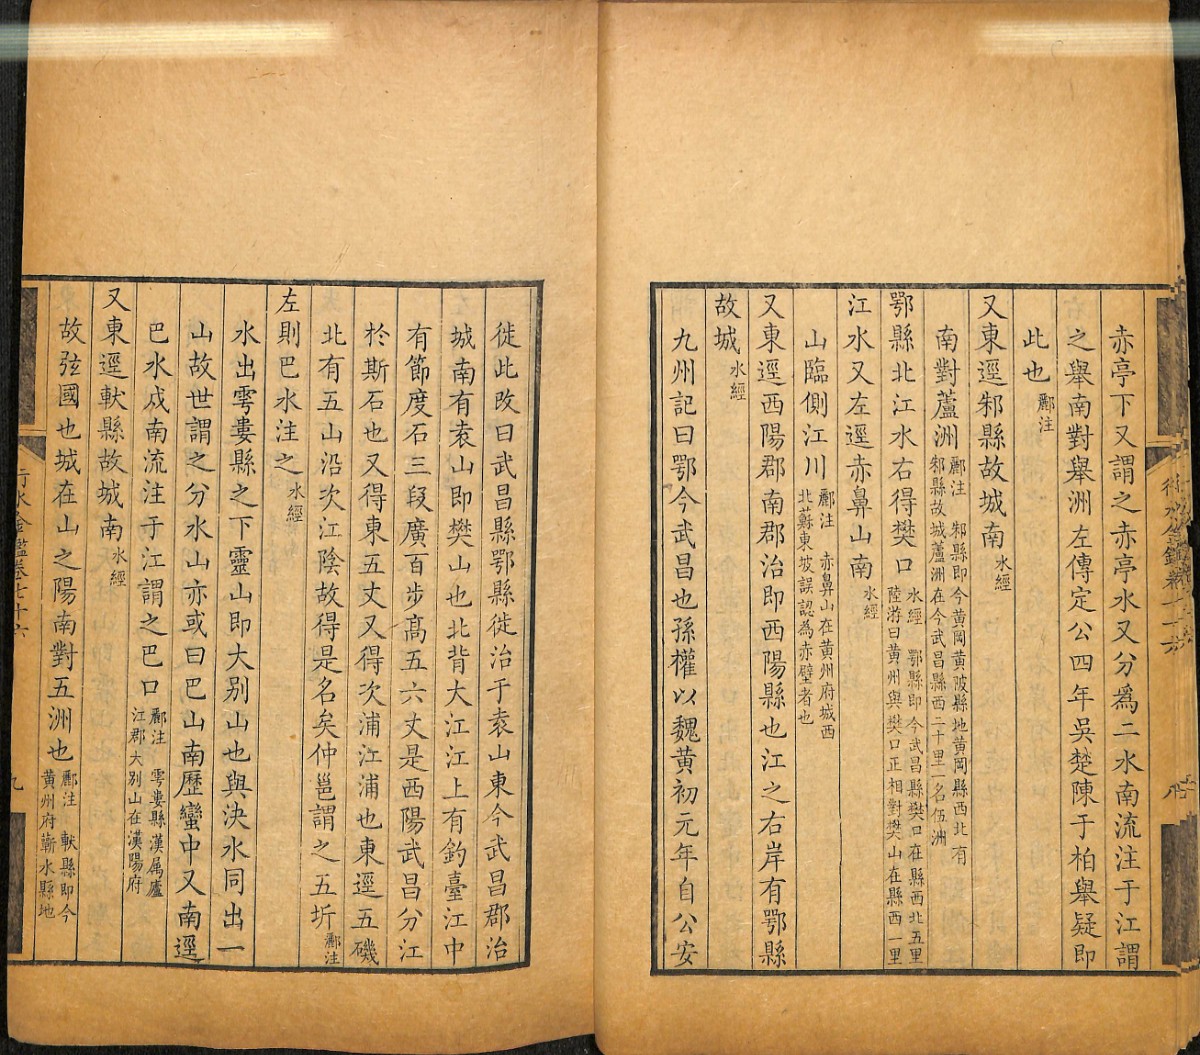 赤亭下又謂之赤亭水又分爲二水南流注于江謂
之舉南對舉洲左傳定公四年吳楚陳于柏舉疑即
此也酈注
又東逕邾縣故城南水經
南對蘆洲酈注 邾縣即今黄岡黄陂縣地黄岡縣西北有邾縣故城蘆洲在今武昌縣西二十里一名伍洲
鄂縣北江水右得樊口水經 鄂縣即今武昌縣樊口在縣西北五里陸游曰黄州與樊口正相對樊山在縣西一里
江水又左逕赤鼻山南水經
山臨側江川酈注 赤鼻山在黄州府城西北蘇東坡誤認為赤壁者也
又東逕西陽郡南郡治即西陽縣也江之右岸有鄂縣
故城水經
九州記曰鄂今武昌也孫權以魏黄初元年自公安
徙此改曰武昌縣鄂縣徙治于袁山東今武昌郡治
城南有袁山即樊山也北背大江江上有釣臺江中
有節度石三段廣百步髙五六丈是西陽武昌分江
於斯石也又得東五丈又得次浦江浦也東逕五磯
北有五山沿次江陰故得是名矣仲邕謂之五圻酈注
左則巴水注之水經
水出雩婁縣之下靈山即大别山也與決水同出一
山故世謂之分水山亦或曰巴山南歷蠻中又南逕
巴水戍南流注于江謂之巴口酈注 雩婁縣漢属廬江郡大别山在漢陽府
又東逕軑縣故城南水經
故弦國也城在山之陽南對五洲也酈注 軑縣即今黄州府蘄水縣地
行水金鑑卷七十六
九